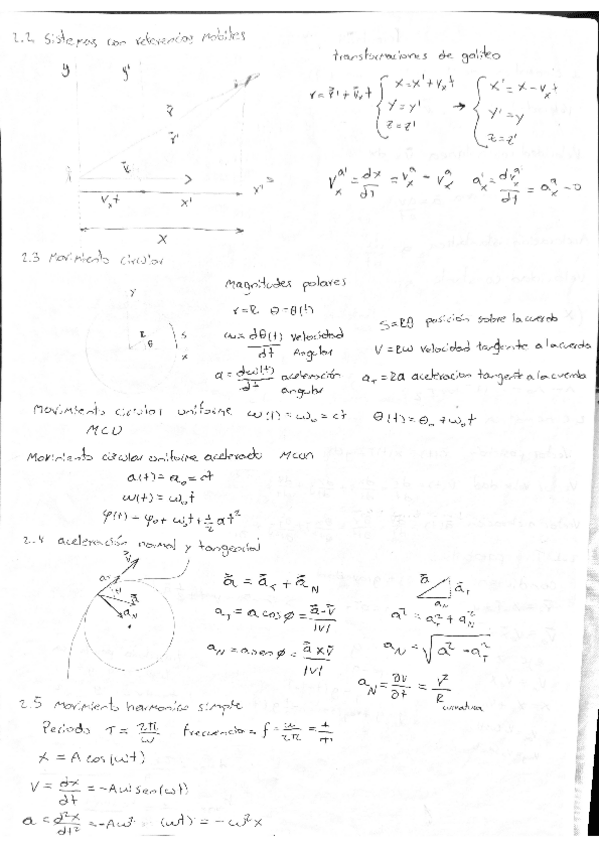 2.2 Sistemas con referencias mobiles
transformaciones de galileo
y y'
r = r̄' + v̄ₓt { x = x' + vₓt → { x' = x - vₓt
y = y' y' = y
z = z' z = z'
r̄
r̄'
vₓt x' x''
x
Vₓᵃ' = dx/dt = vₓᵃ - vₓᵃ aₓ' = dvₓᵃ/dt = aₓᵃ - 0
2.3 Movimiento circular
Magnitudes polares
Y
r = R θ = θ(t)
R θ S x
ω = dθ(t)/dt velocidad Angular
a = dω(t)/dt aceleración angular
S = Rθ posición sobre la cuerda
V = Rω velocidad tangente a la cuerda
a_T = Ra aceleracion tangent a la cuerda
Movimiento circular uniforme ω(t) = ω₀ = ct θ(t) = θ₀ + ω₀t
MCU
Movimiento circular uniforme acelerado
a(t) = a₀ = ct
ω(t) = ω₀t
φ(t) = φ₀ + ω₀t + 1/2 at²
2.4 aceleración normal y tangencial
v̄
ā
a_N
ā = ā_T + ā_N
a_T = a cos φ = ā·v̄/|v|
a_N = a sen φ = ā×v̄/|v|
ā ā_T
a_N
a² = a_T² + a_N²
a_N = √(a² - a_T²)
a_N = ∂v/∂t = v²/R curvatura
2.5 Movimiento harmonico simple
Periodo T = 2π/ω frecuencia = f = ω/2π = 1/T
x = A cos(ωt)
V = dx/dt = -Aω sen(ωt)
a = d²x/dt² = -Aω² (ωt) = -ω²x